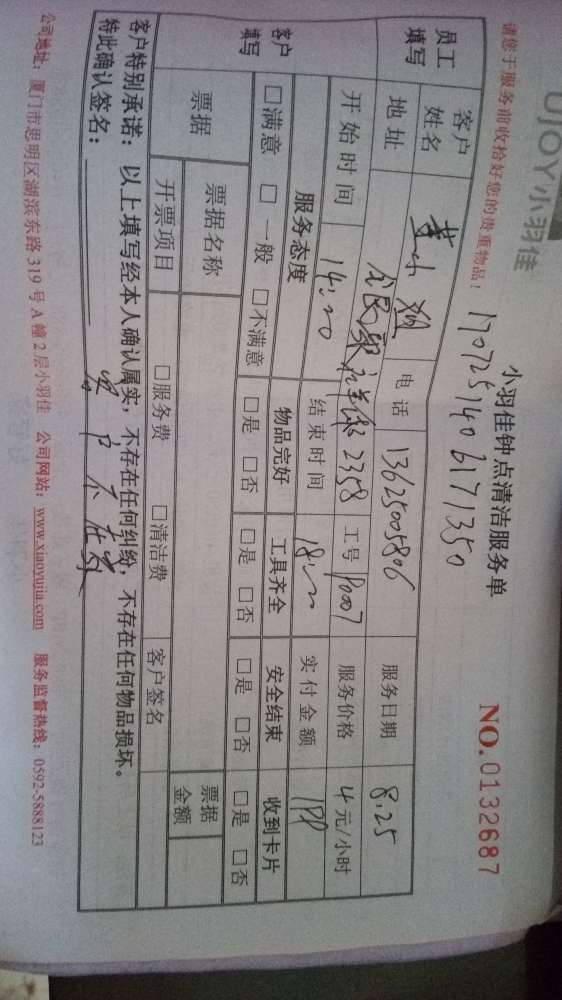 UJOY小羽佳
小羽佳钟点清洁服务单
NO.0132687
请您于服务前收拾好您的贵重物品！
1707251406171350
员工填写
客户姓名
电话 13625005806
服务日期 8.25
地址 2358
工号 P007
服务价格 4元/小时
开始时间 14:00
结束时间 18:00
实付金额
客户填写
服务态度 物品完好 工具齐全 安全结束 收到卡片
□满意 □一般 □不满意 □是 □否 □是 □否 □是 □否 □是 □否
票据
票据名称
票据金额
开票项目 □服务费 □清洁费 客户签名
客户特别承诺：以上填写经本人确认属实，不存在任何纠纷，不存在任何物品损坏。
特此确认签名： 客户不在家
公司地址：厦门市思明区湖滨东路319号A幢2层小羽佳 公司网站：www.xiaoyujia.com 服务监督热线：0592-5888123